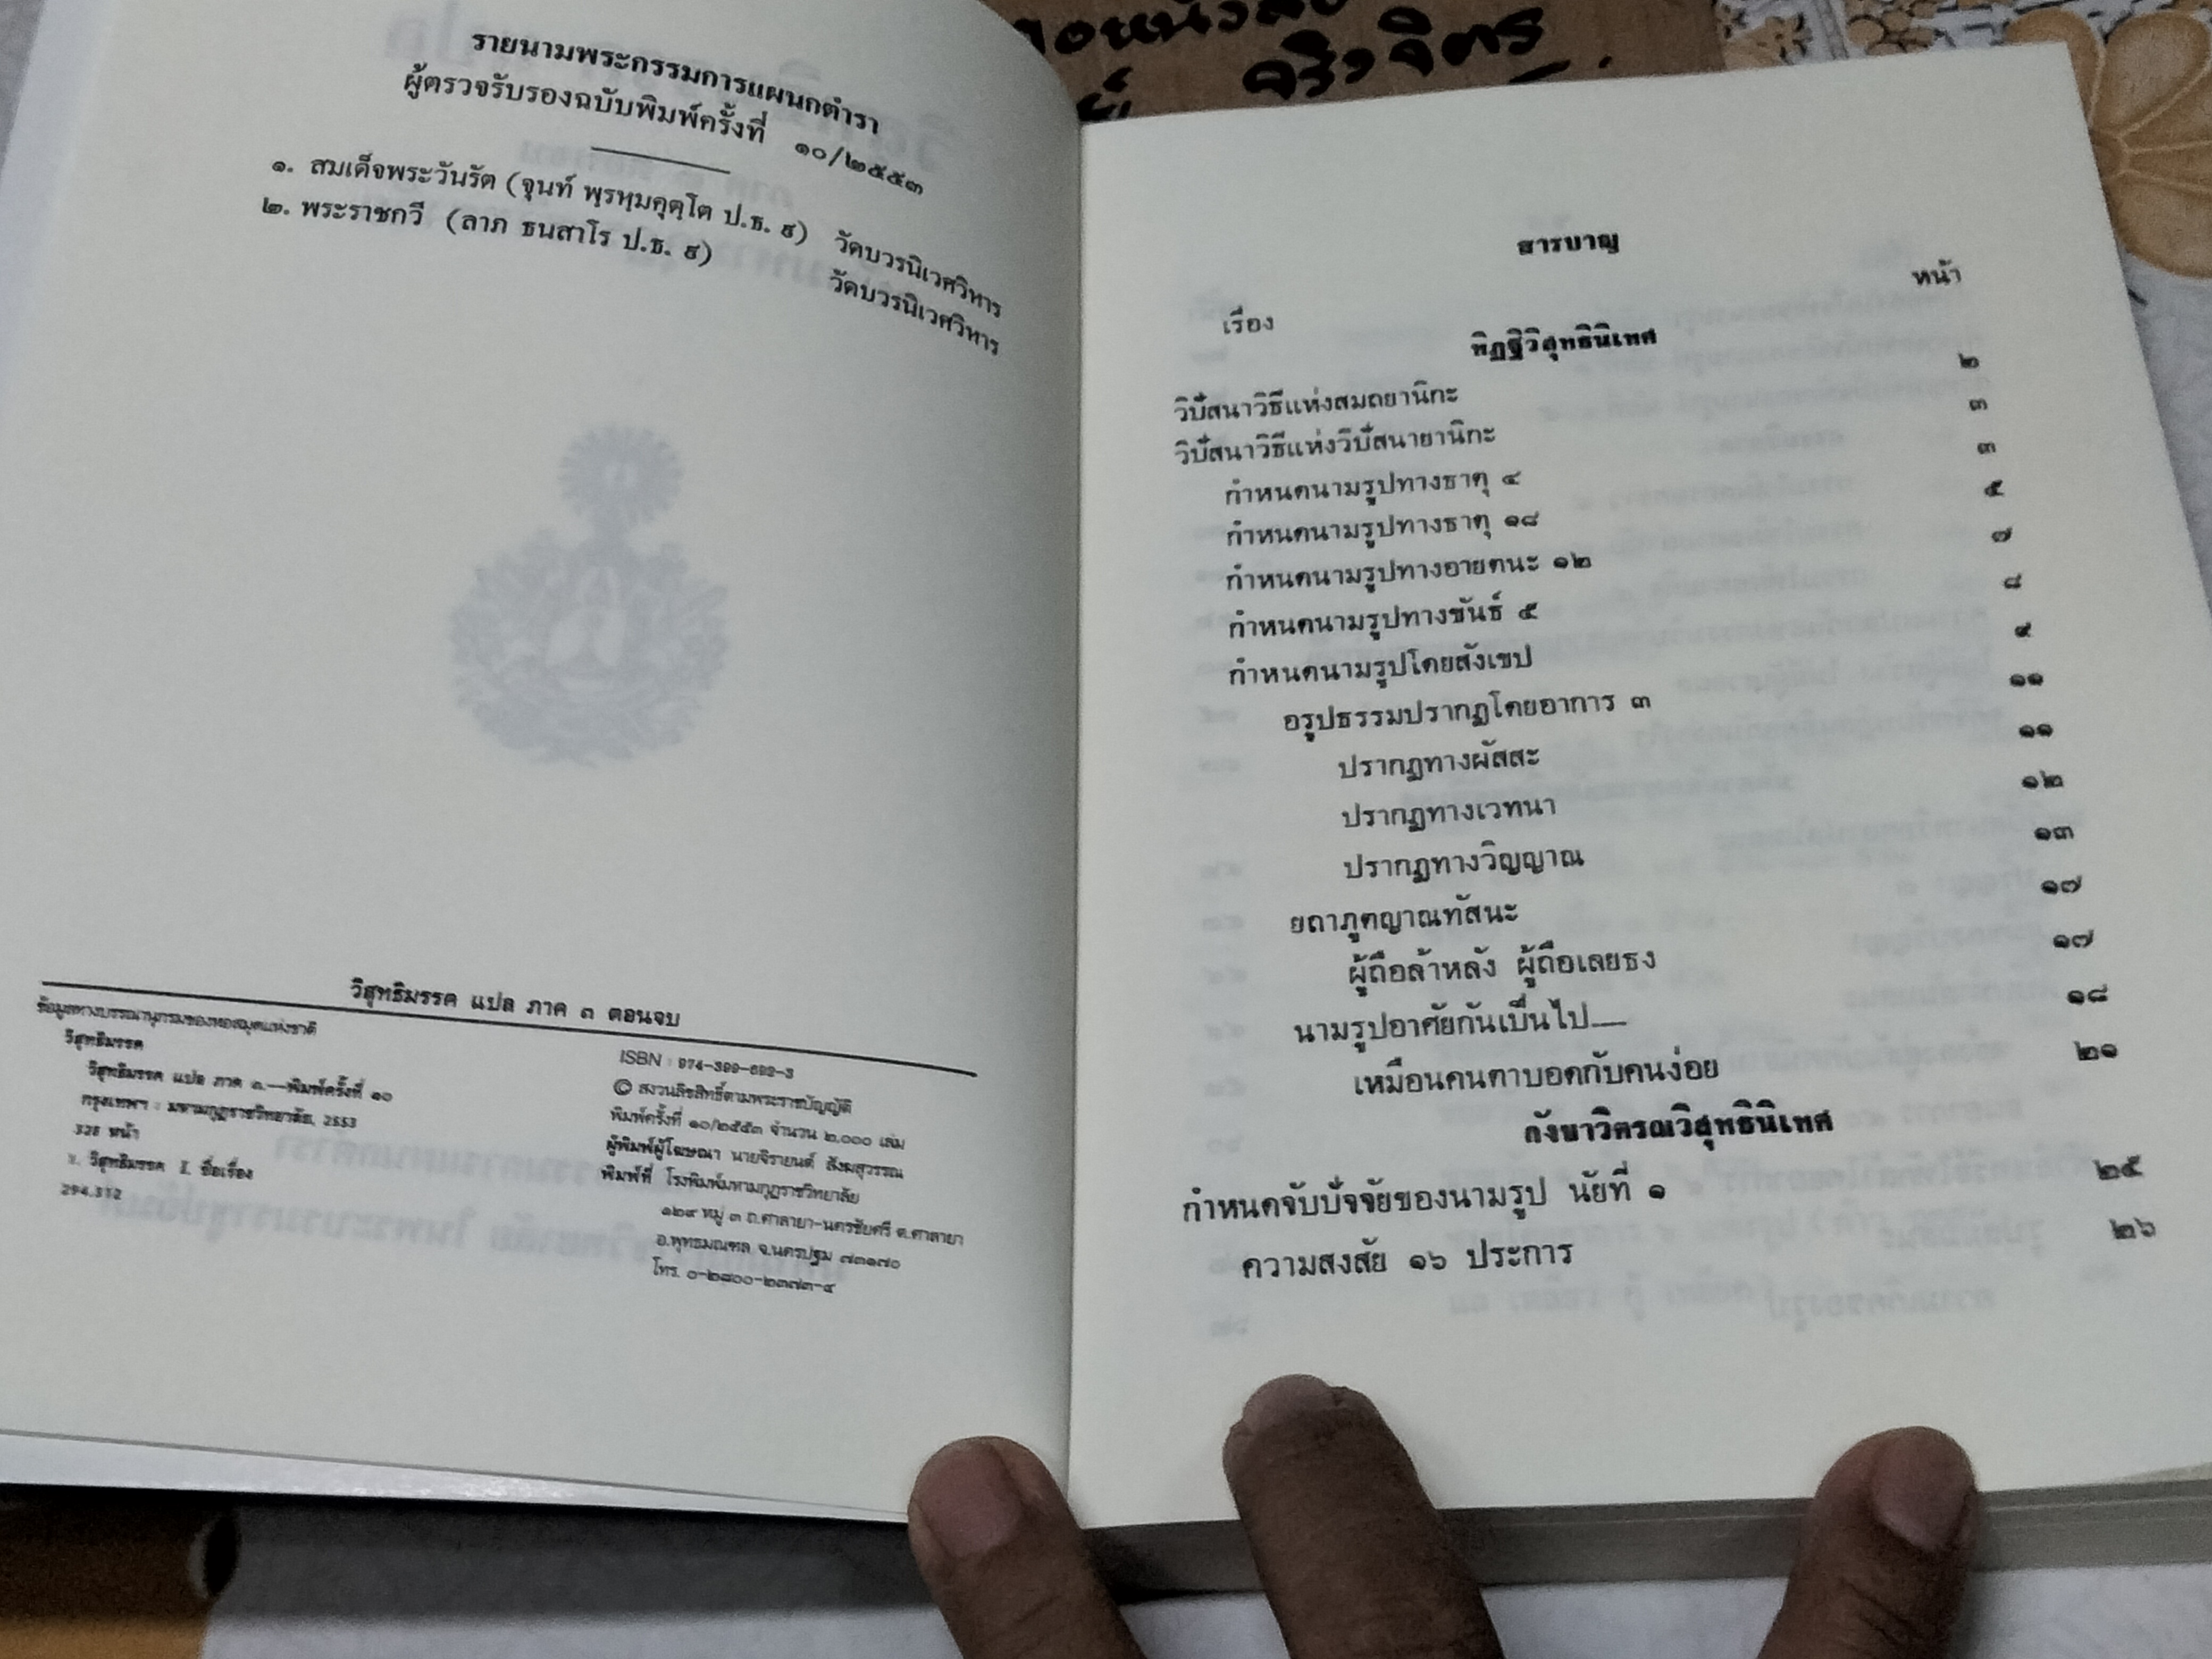 รายนามพระกรรมการแผนกตำรา
ผู้ตรวจรับรองฉบับพิมพ์ครั้งที่ ๑๐/๒๕๕๓
๑. สมเด็จพระวันรัต (จุนท์ พฺรหฺมคุตฺโต ป.ธ. ๙) วัดบวรนิเวศวิหาร
๒. พระราชกวี (ลาภ ธนสาโร ป.ธ. ๙) วัดบวรนิเวศวิหาร
วิสุทธิมรรค แปล ภาค ๓ ตอนจบ
ข้อมูลทางบรรณานุกรมของหอสมุดแห่งชาติ
วิสุทธิมรรค
วิสุทธิมรรค แปล ภาค ๓.—พิมพ์ครั้งที่ ๑๐
กรุงเทพฯ : มหามกุฏราชวิทยาลัย, 2553
328 หน้า
๑. วิสุทธิมรรค I. ชื่อเรื่อง
294.312
ISBN : 974-399-692-3
© สงวนลิขสิทธิ์ตามพระราชบัญญัติ
พิมพ์ครั้งที่ ๑๐/๒๕๕๓ จำนวน ๒,๐๐๐ เล่ม
ผู้พิมพ์ผู้โฆษณา นายจิรายนต์ สังฆสุวรรณ
พิมพ์ที่ โรงพิมพ์มหามกุฏราชวิทยาลัย
๑๒๙ หมู่ ๓ ถ.ศาลายา-นครชัยศรี ต.ศาลายา
อ.พุทธมณฑล จ.นครปฐม ๗๓๑๗๐
โทร. ๐-๒๘๐๐-๒๓๗๓-๔
จริงจิตร
สารบาญ
เรื่อง หน้า
ทิฏฐิวิสุทธินิเทศ
วิปัสนาวิธีแห่งสมถยานิกะ ๒
วิปัสนาวิธีแห่งวิปัสนายานิกะ ๓
กำหนดนามรูปทางธาตุ ๔ ๓
กำหนดนามรูปทางธาตุ ๑๘ ๕
กำหนดนามรูปทางอายตนะ ๑๒ ๗
กำหนดนามรูปทางขันธ์ ๕ ๘
กำหนดนามรูปโดยสังเขป ๙
อรูปธรรมปรากฏโดยอาการ ๓ ๑๑
ปรากฏทางผัสสะ ๑๑
ปรากฏทางเวทนา ๑๒
ปรากฏทางวิญญาณ ๑๓
ยถาภูตญาณทัสนะ ๑๗
ผู้ถือล้าหลัง ผู้ถือเลยธง ๑๗
นามรูปอาศัยกันเป็นไป— ๑๘
เหมือนคนตาบอดกับคนง่อย ๒๑
กังขาวิตรณวิสุทธินิเทศ
กำหนดจับปัจจัยของนามรูป นัยที่ ๑ ๒๕
ความสงสัย ๑๖ ประการ ๒๖